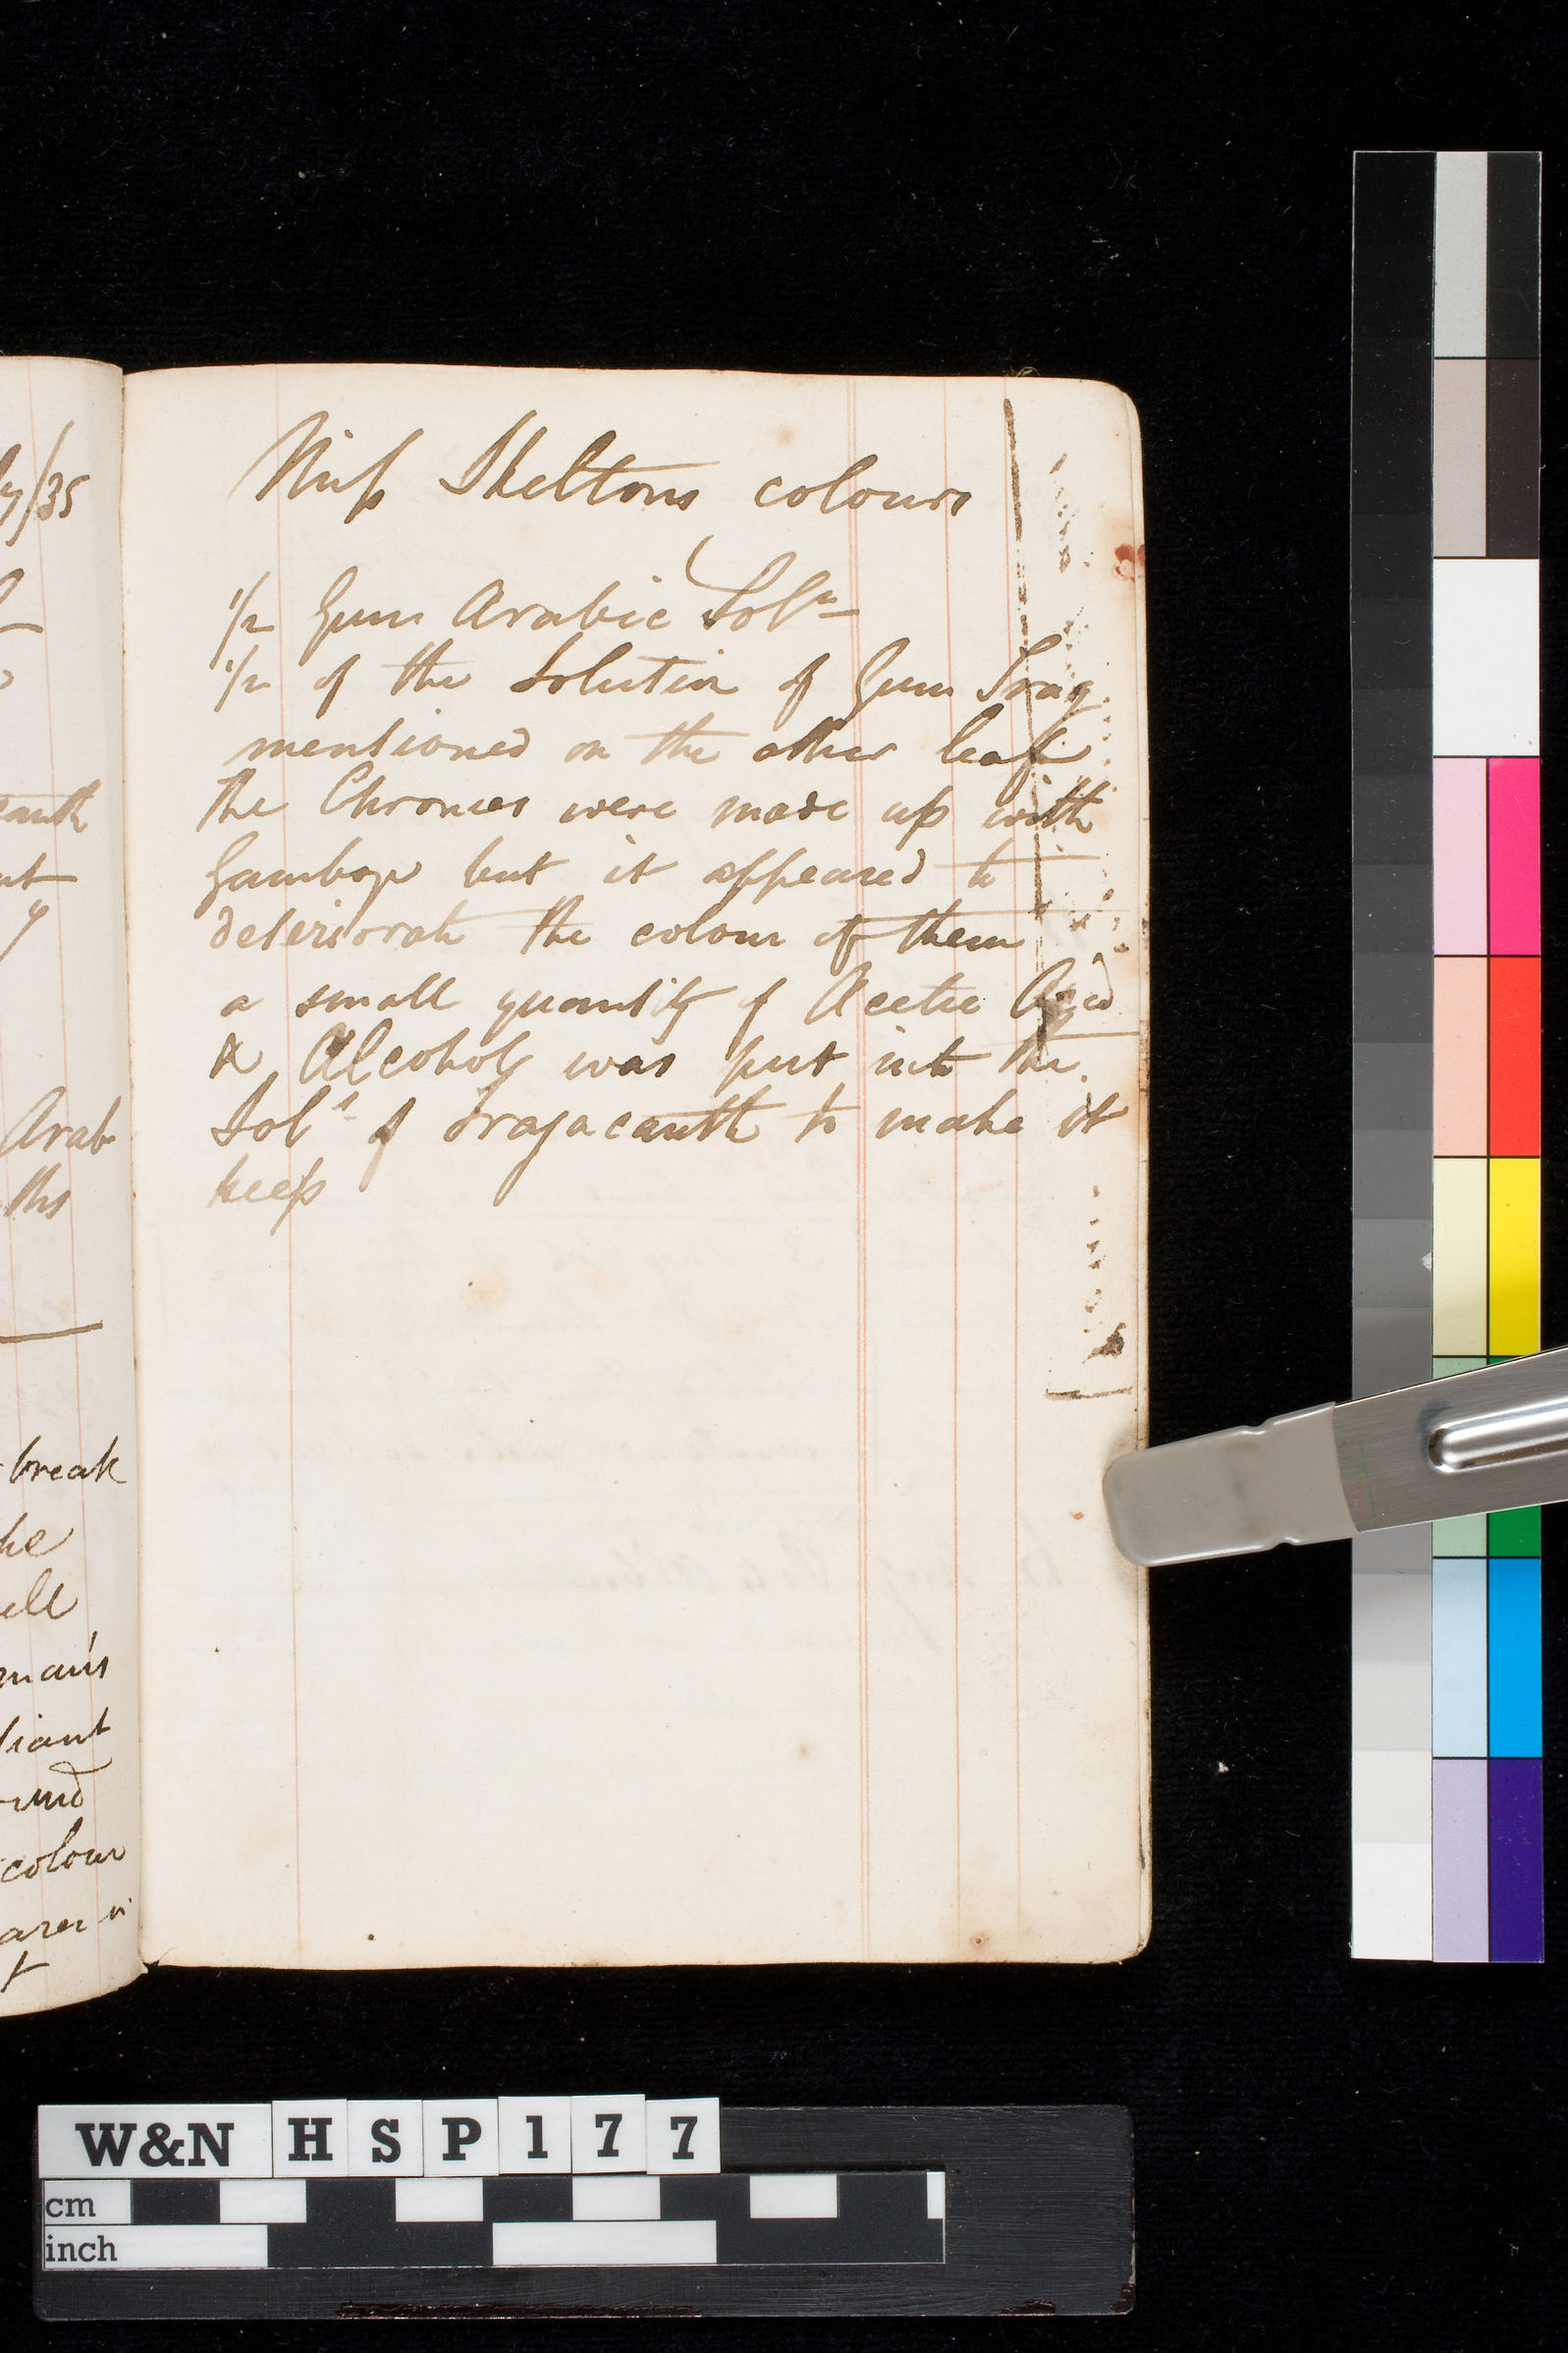 ly/35
anth
nt
y
Arab
ths
break
he
ell
mains
liant
und
colour
arer in
t
Miss Skeltons colours
1/2 Gum Arabic Soln
1/2 of the Solution of Gum Trag
mentioned on the other leaf
the Chromes were made up with
Gamboge but it appeared to
deteriorate the colour of them
a small quantity of Acetic Acid
& Alcohol was put into the
Soln of Tragacanth to make it
keep
W&N HSP177
cm
inch